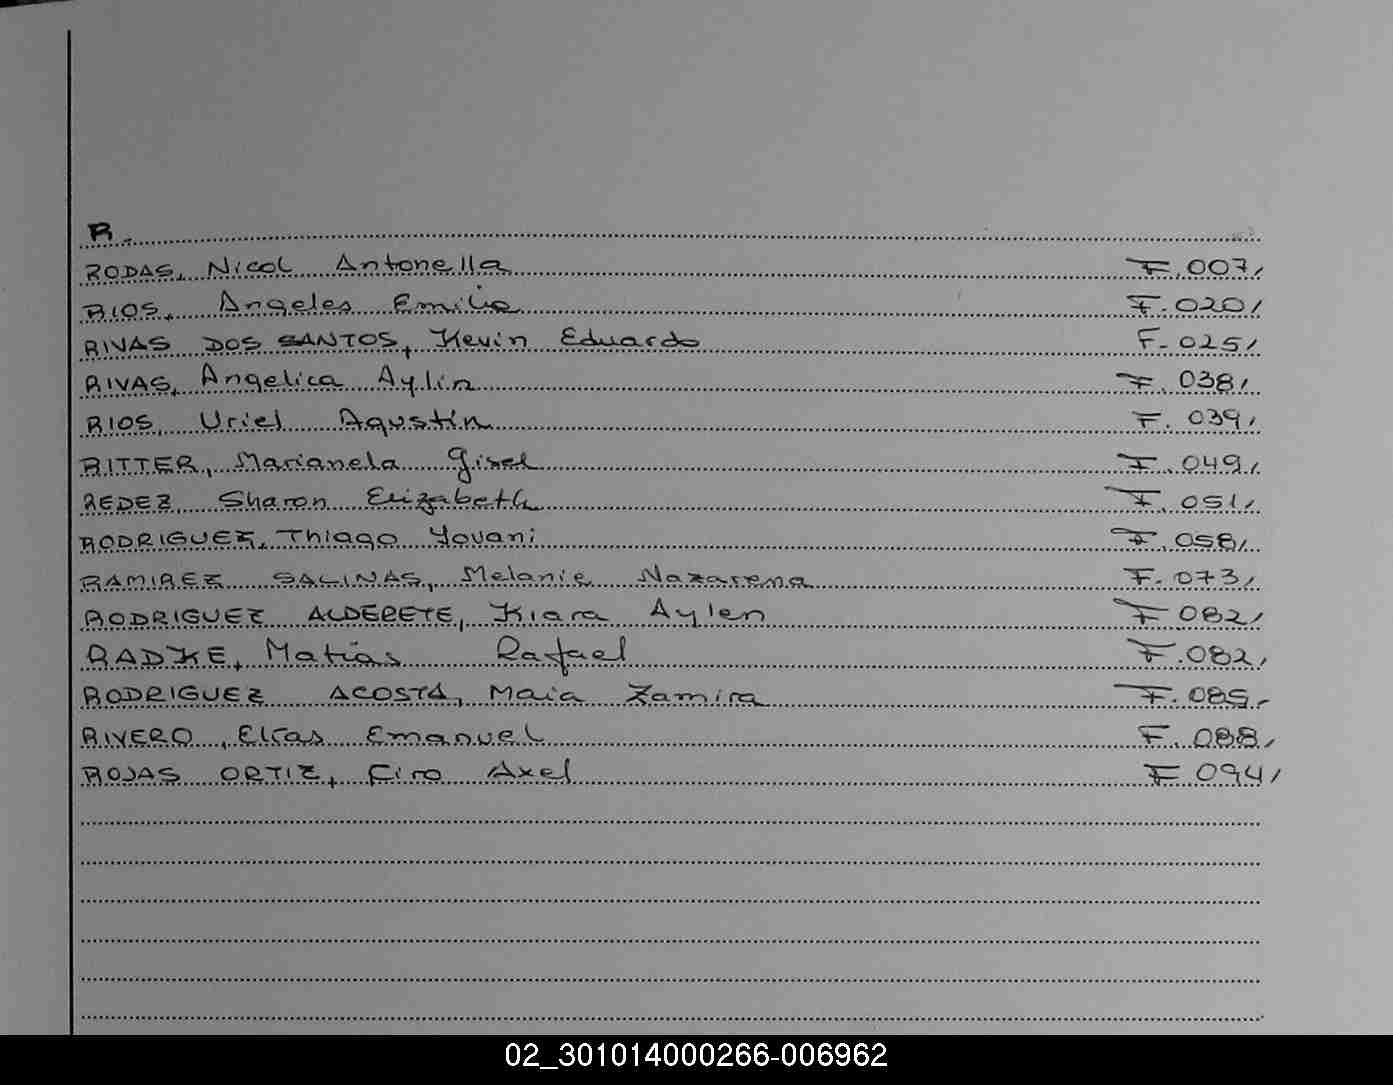 R.
RODAS, Nicol Antonella F. 007,
RIOS, Angeles Emilia F. 020,
RIVAS DOS SANTOS, Kevin Eduardo F. 025,
RIVAS, Angelica Aylin F. 038,
RIOS, Uriel Agustín F. 039,
RITTER, Marianela Gisel F. 049,
REDEZ, Sharon Elizabeth F. 051,
RODRIGUEZ, Thiago Yovani F. 058,
RAMIREZ SALINAS, Melanie Nazarena F. 073,
RODRIGUEZ ALDERETE, Kiara Aylen F 082,
RADKE, Matías Rafael F. 082,
RODRIGUEZ ACOSTA, Maia Zamira F. 085,
RIVERO, Elías Emanuel F. 088,
ROJAS ORTIZ, Ciro Axel F. 094,
02_301014000266-006962